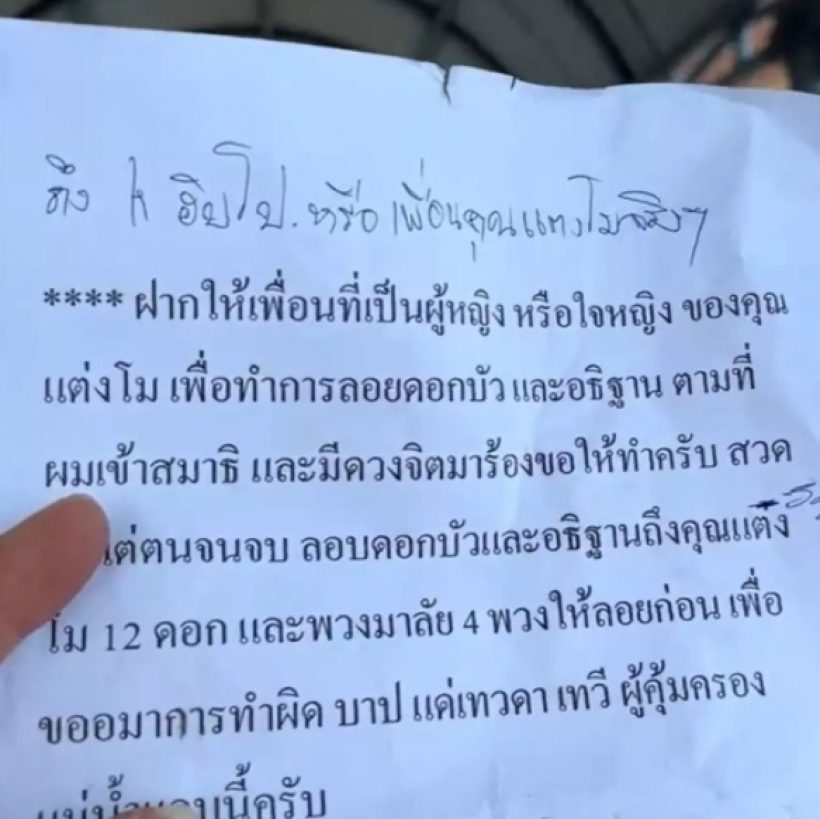 ถึง พี่ ฮิปโป. หรือ เพื่อนคุณแตงโมจริงๆ
**** ฝากให้เพื่อนที่เป็นผู้หญิง หรือใจหญิง ของคุณ
แต่งโม เพื่อทำการลอยดอกบัว และอธิฐาน ตามที่
ผมเข้าสมาธิ และมีดวงจิตมาร้องขอให้ทำครับ สวด
ต่ตนจนจบ ลอบดอกบัวและอธิฐานถึงคุณแต่ง
โม 12 ดอก และพวงมาลัย 4 พวงให้ลอยก่อน เพื่อ
ขออมาการทำผิด บาป แด่เทวดา เทวี ผู้คุ้มครอง
แม่น้ำแถบนี้ครับ